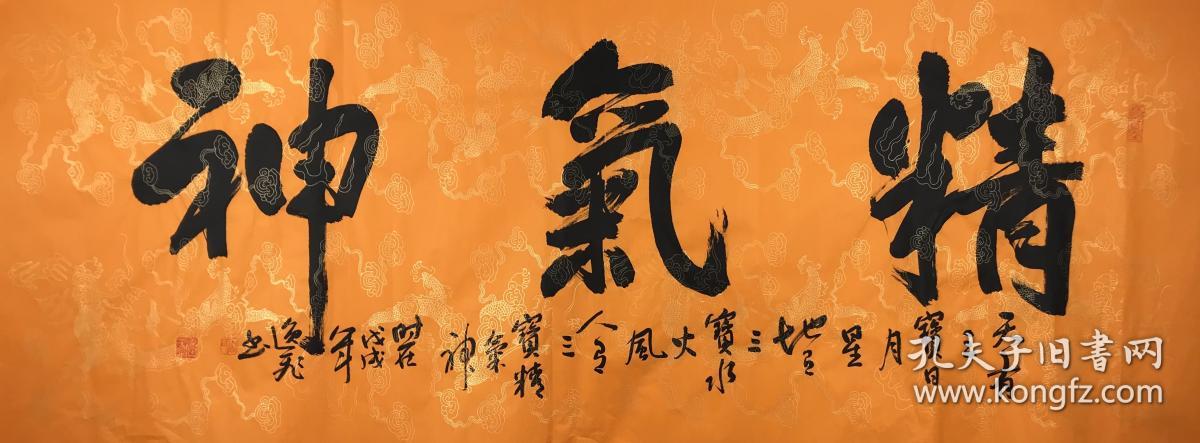 精氣神
天有三寶日月星地有三寶水火風人有三寶精氣神时在戊戌年逸飛书
孔夫子旧书网
www.kongfz.com